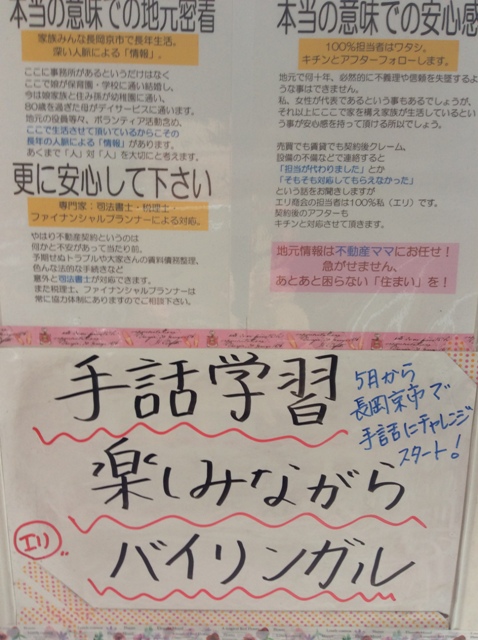 本当の意味での地元密着
家族みんな長岡京市で長年生活。
深い人脈による「情報」。
ここに事務所があるというだけはなく
ここで娘が保育園・学校に通い結婚し、
今は娘家族と住み孫が幼稚園に通い、
80歳を過ぎた母がデイサービスに通います。
地元の役員等々、ボランティア活動含め、
ここで生活させて頂いているからこその
長年の人脈による「情報」があります。
あくまで「人」対「人」を大切にと考えます。
更に安心して下さい
専門家：司法書士・税理士・
ファイナンシャルプランナーによる対応。
やはり不動産契約というのは
何かと不安があって当たり前。
予期せぬトラブルや大家さんの賃料債務整理、
色んな法的な手続きなど
意外と司法書士が対応できます。
また税理士、ファイナンシャルプランナーは
常に協力体制にありますのでご相談下さい。
本当の意味での安心感
100%担当者はワタシ。
キチンとアフターフォローします。
地元で何十年、必然的に不義理や信頼を失墜するよ
うな事はできません。
私、女性が代表であるという事もあるでしょうが、
それ以上にここで家を構え家族が生活しているとい
う事が安心感を持って頂ける所以でしょう。
売買でも賃貸でも契約後クレーム、
設備の不備などで連絡すると
「担当が代わりました」とか
「そもそも対応してもらえなかった」
という話をお聞きしますが
エリ商会の担当者は100%私（エリ）です。
契約後のアフターも
キチンと対応させて頂きます。
地元情報は不動産ママにお任せ！
急がせません、
あとあと困らない「住まい」を！
手話学習
5月から
長岡京市で
手話にチャレンジ
スタート！
楽しみながら
エリ
バイリンガル